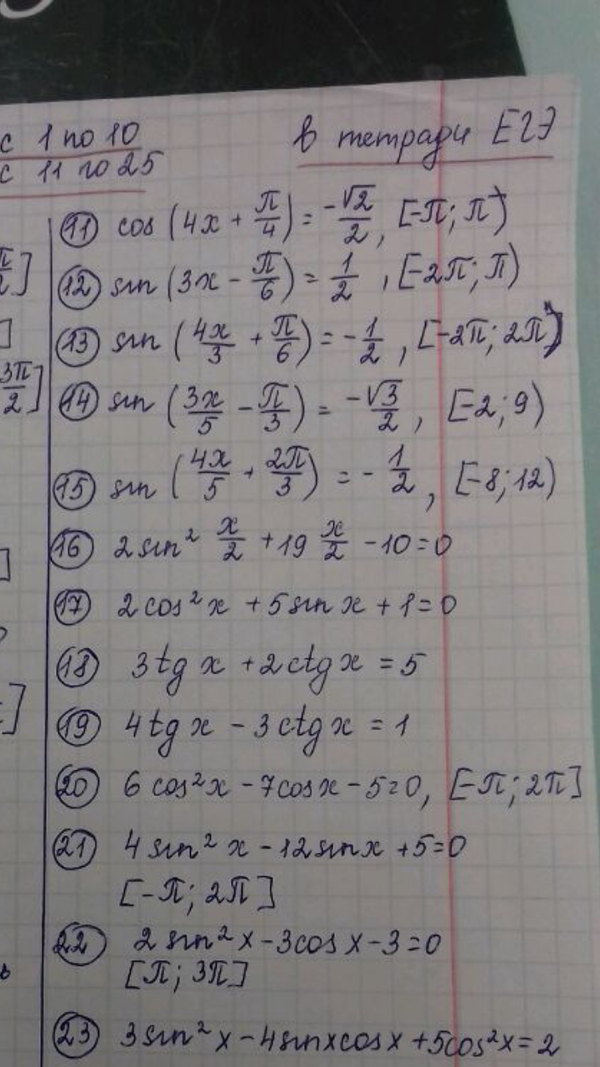 с 1 по 10
в тетради ЕГЭ
с 11 по 25
π/2]
]
3π/2]
]
11 cos (4x + π/4) = -√2/2, [-π; π)
12 sin (3x - π/6) = 1/2, [-2π; π)
13 sin (4x/3 + π/6) = -1/2, [-2π; 2π)
14 sin (3x/5 - π/3) = -√3/2, [-2; 9)
15 sin (4x/5 + 2π/3) = -1/2, [-8; 12)
16 2 sin² x/2 + 19 x/2 - 10 = 0
17 2 cos² x + 5 sin x + 1 = 0
18 3 tg x + 2 ctg x = 5
19 4 tg x - 3 ctg x = 1
20 6 cos² x - 7 cos x - 5 = 0, [-π; 2π]
21 4 sin² x - 12 sin x + 5 = 0
[-π; 2π]
22 2 sin² x - 3 cos x - 3 = 0
[π; 3π]
23 3 sin² x - 4 sin x cos x + 5 cos² x = 2